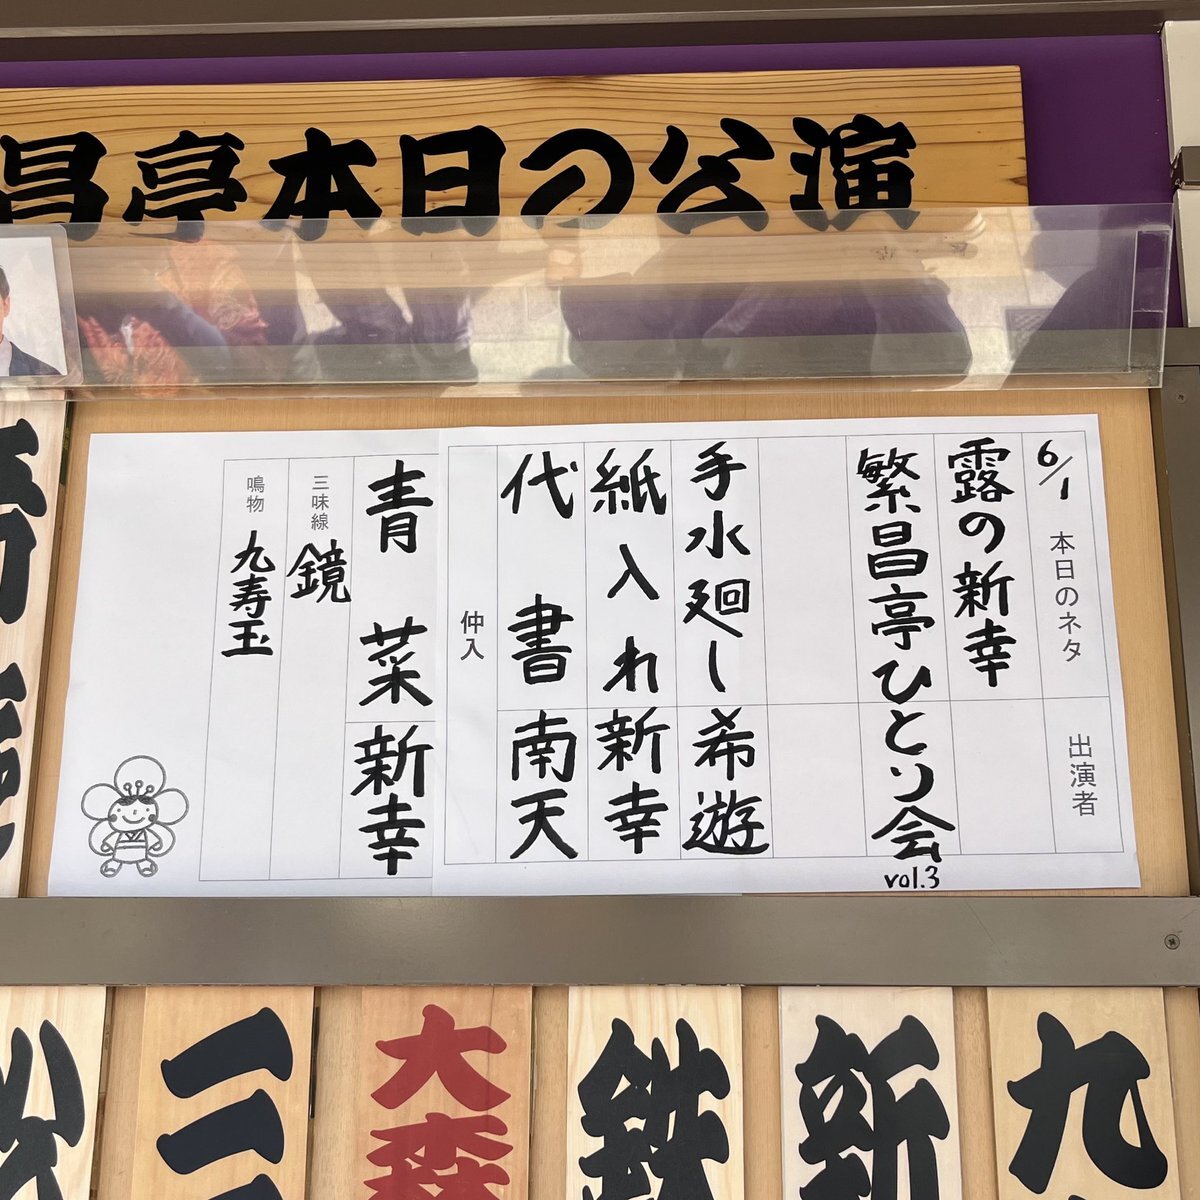 昌亭本日の公演
6/1 本日のネタ 出演者
露の新幸
繁昌亭ひとり会 vol.3
手水廻し 希遊
紙入れ 新幸
代書 南天
仲入
青菜 新幸
三味線 鏡
鳴物 九寿玉
九
新
鉄
大森
三